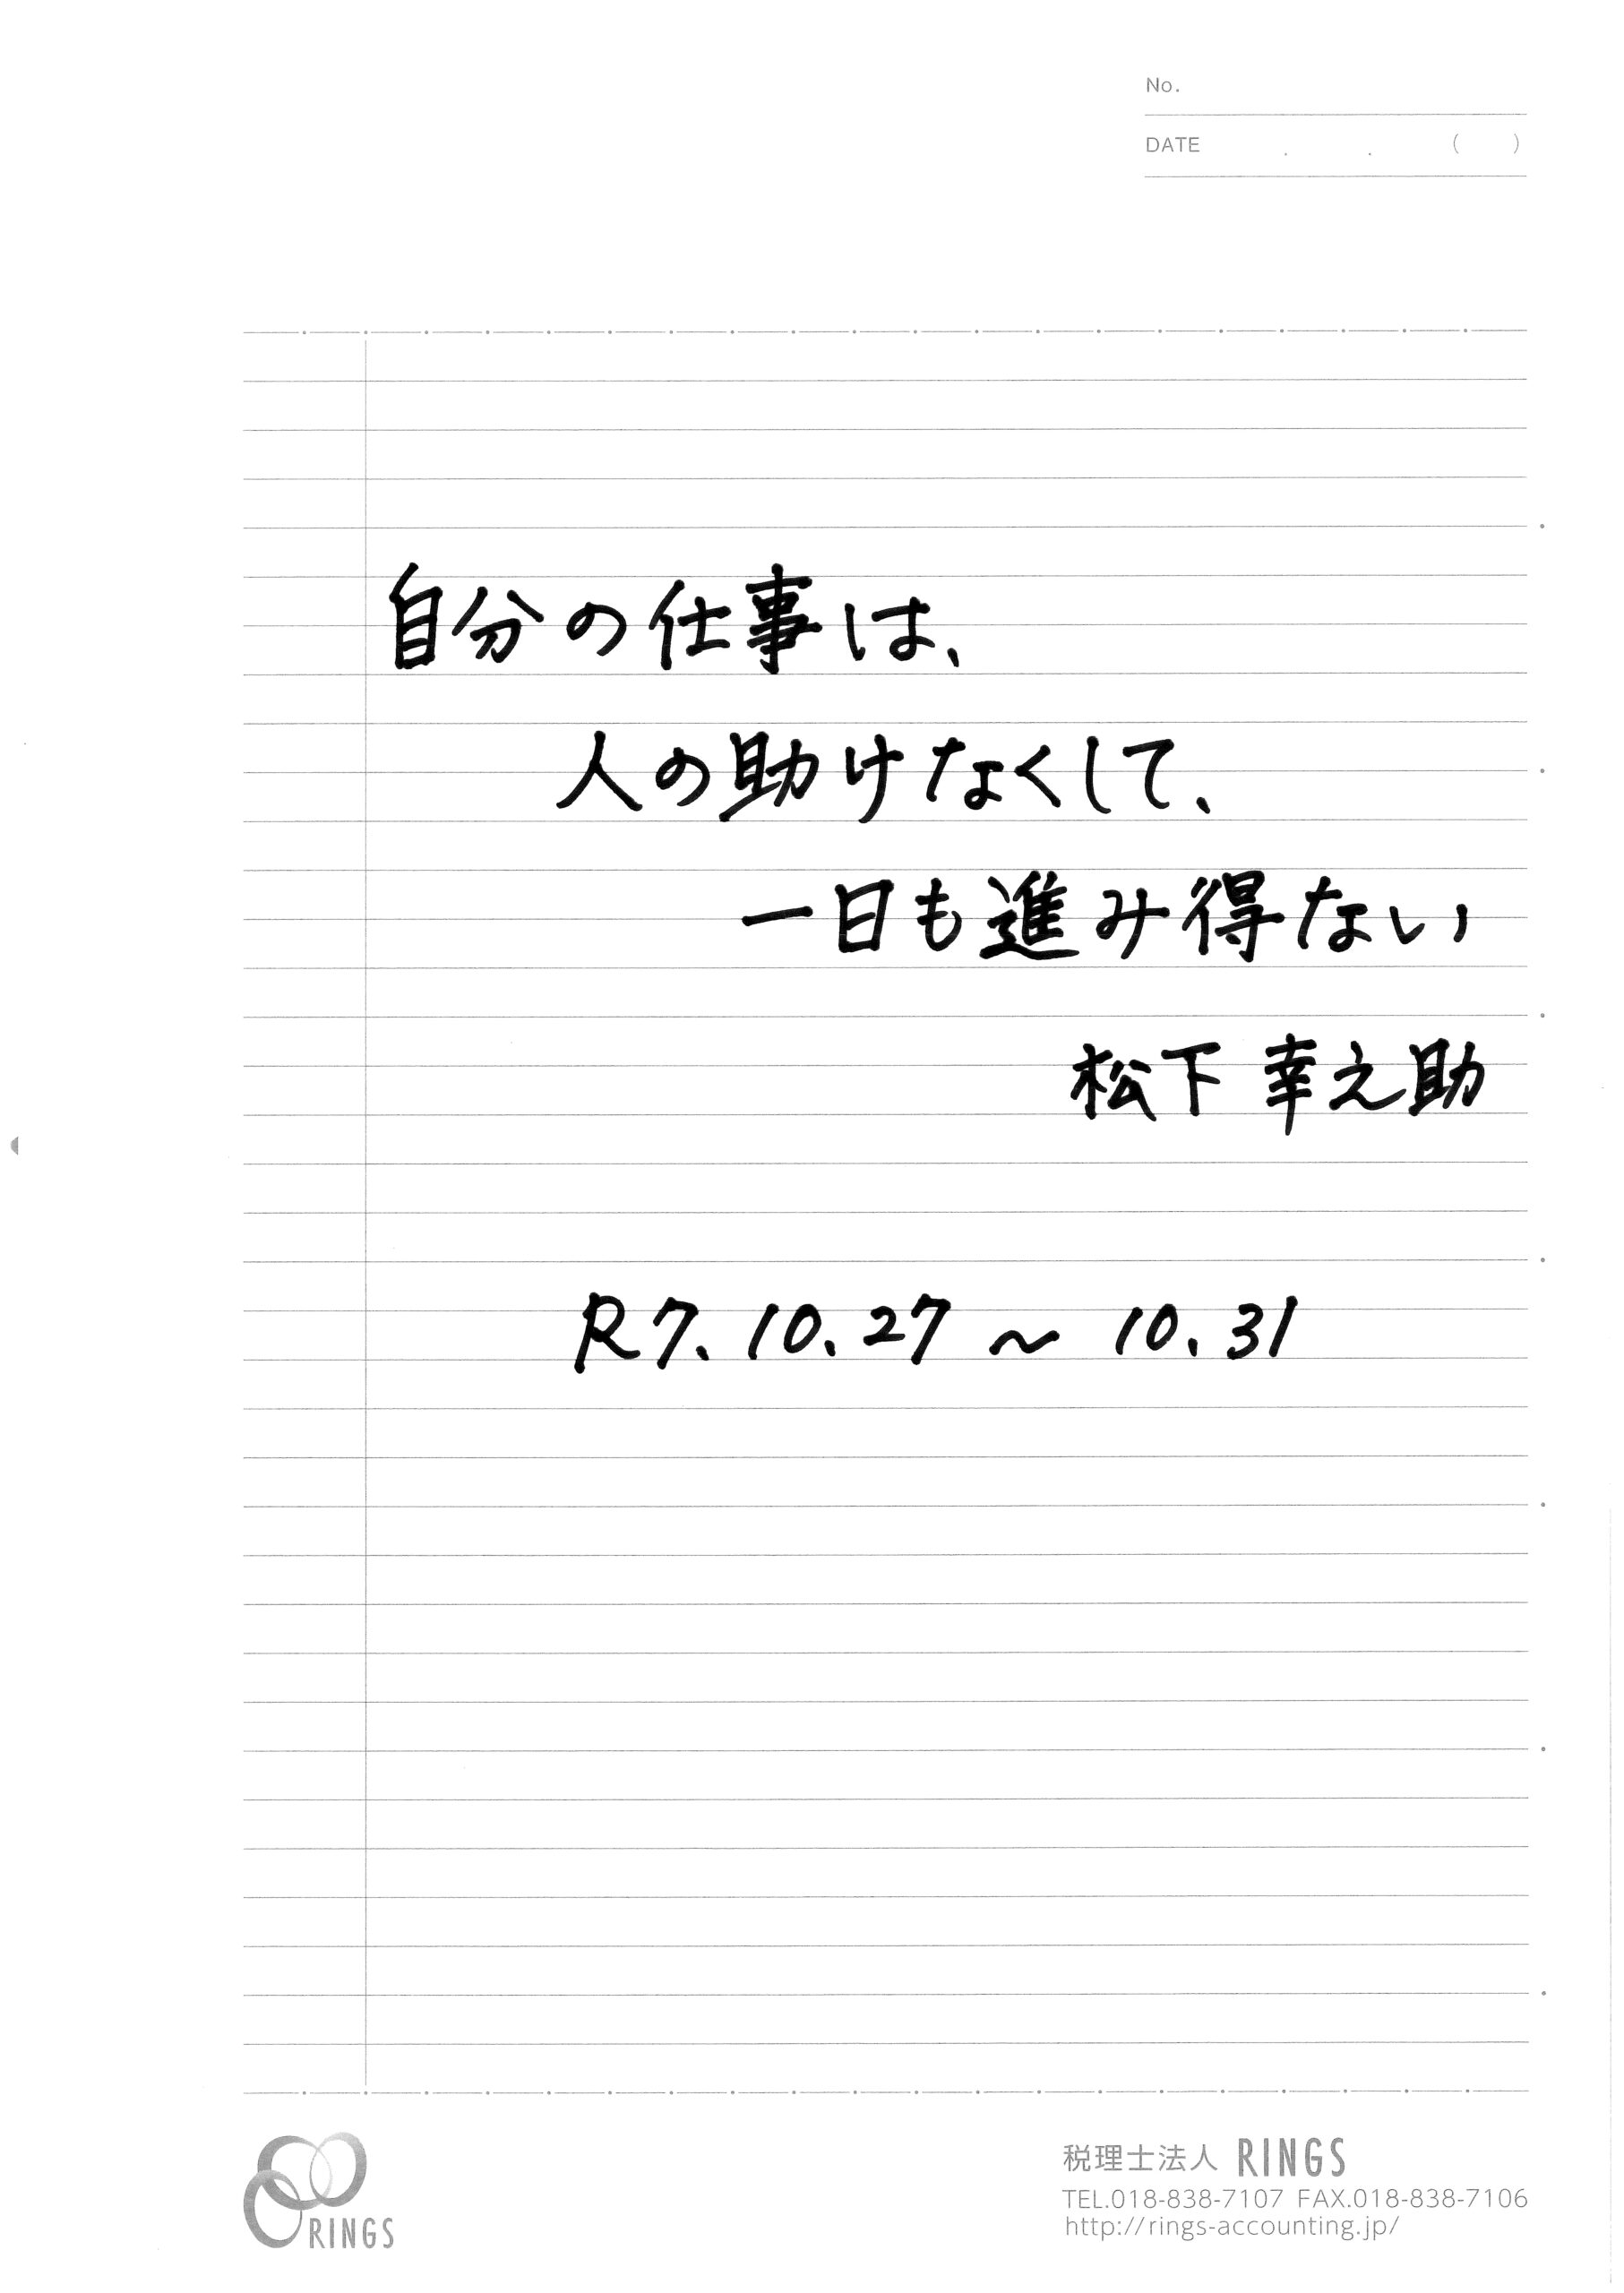 No.
DATE . . ( )
自分の仕事は、
人の助けなくして、
一日も進み得ない
松下幸之助
R7.10.27 ~ 10.31
RINGS
税理士法人 RINGS
TEL.018-838-7107 FAX.018-838-7106
http://rings-accounting.jp/